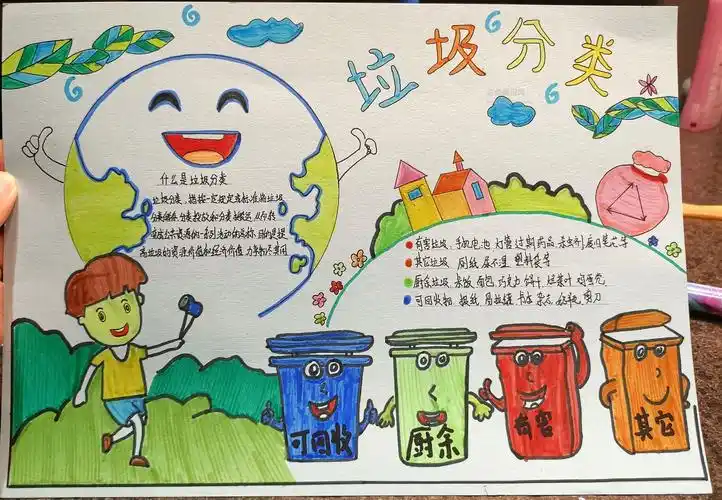 垃圾分类
什么是垃圾分类
垃圾分类,指按一定规定或标准将垃圾
分类储存、分类投放和分类搬运,从而转
变成公共资源的一系列活动的总称。目的是提
高垃圾的资源价值和经济价值,力争物尽其用
有害垃圾:手机电池 灯管 过期药品 杀虫剂 废日光灯等
其它垃圾 厕纸 尿不湿 塑料袋等
厨余垃圾 米饭 面包 巧克力 饼干
可回收物 报纸 易拉罐 杂志 剪刀
可回收
厨余
有害
其它